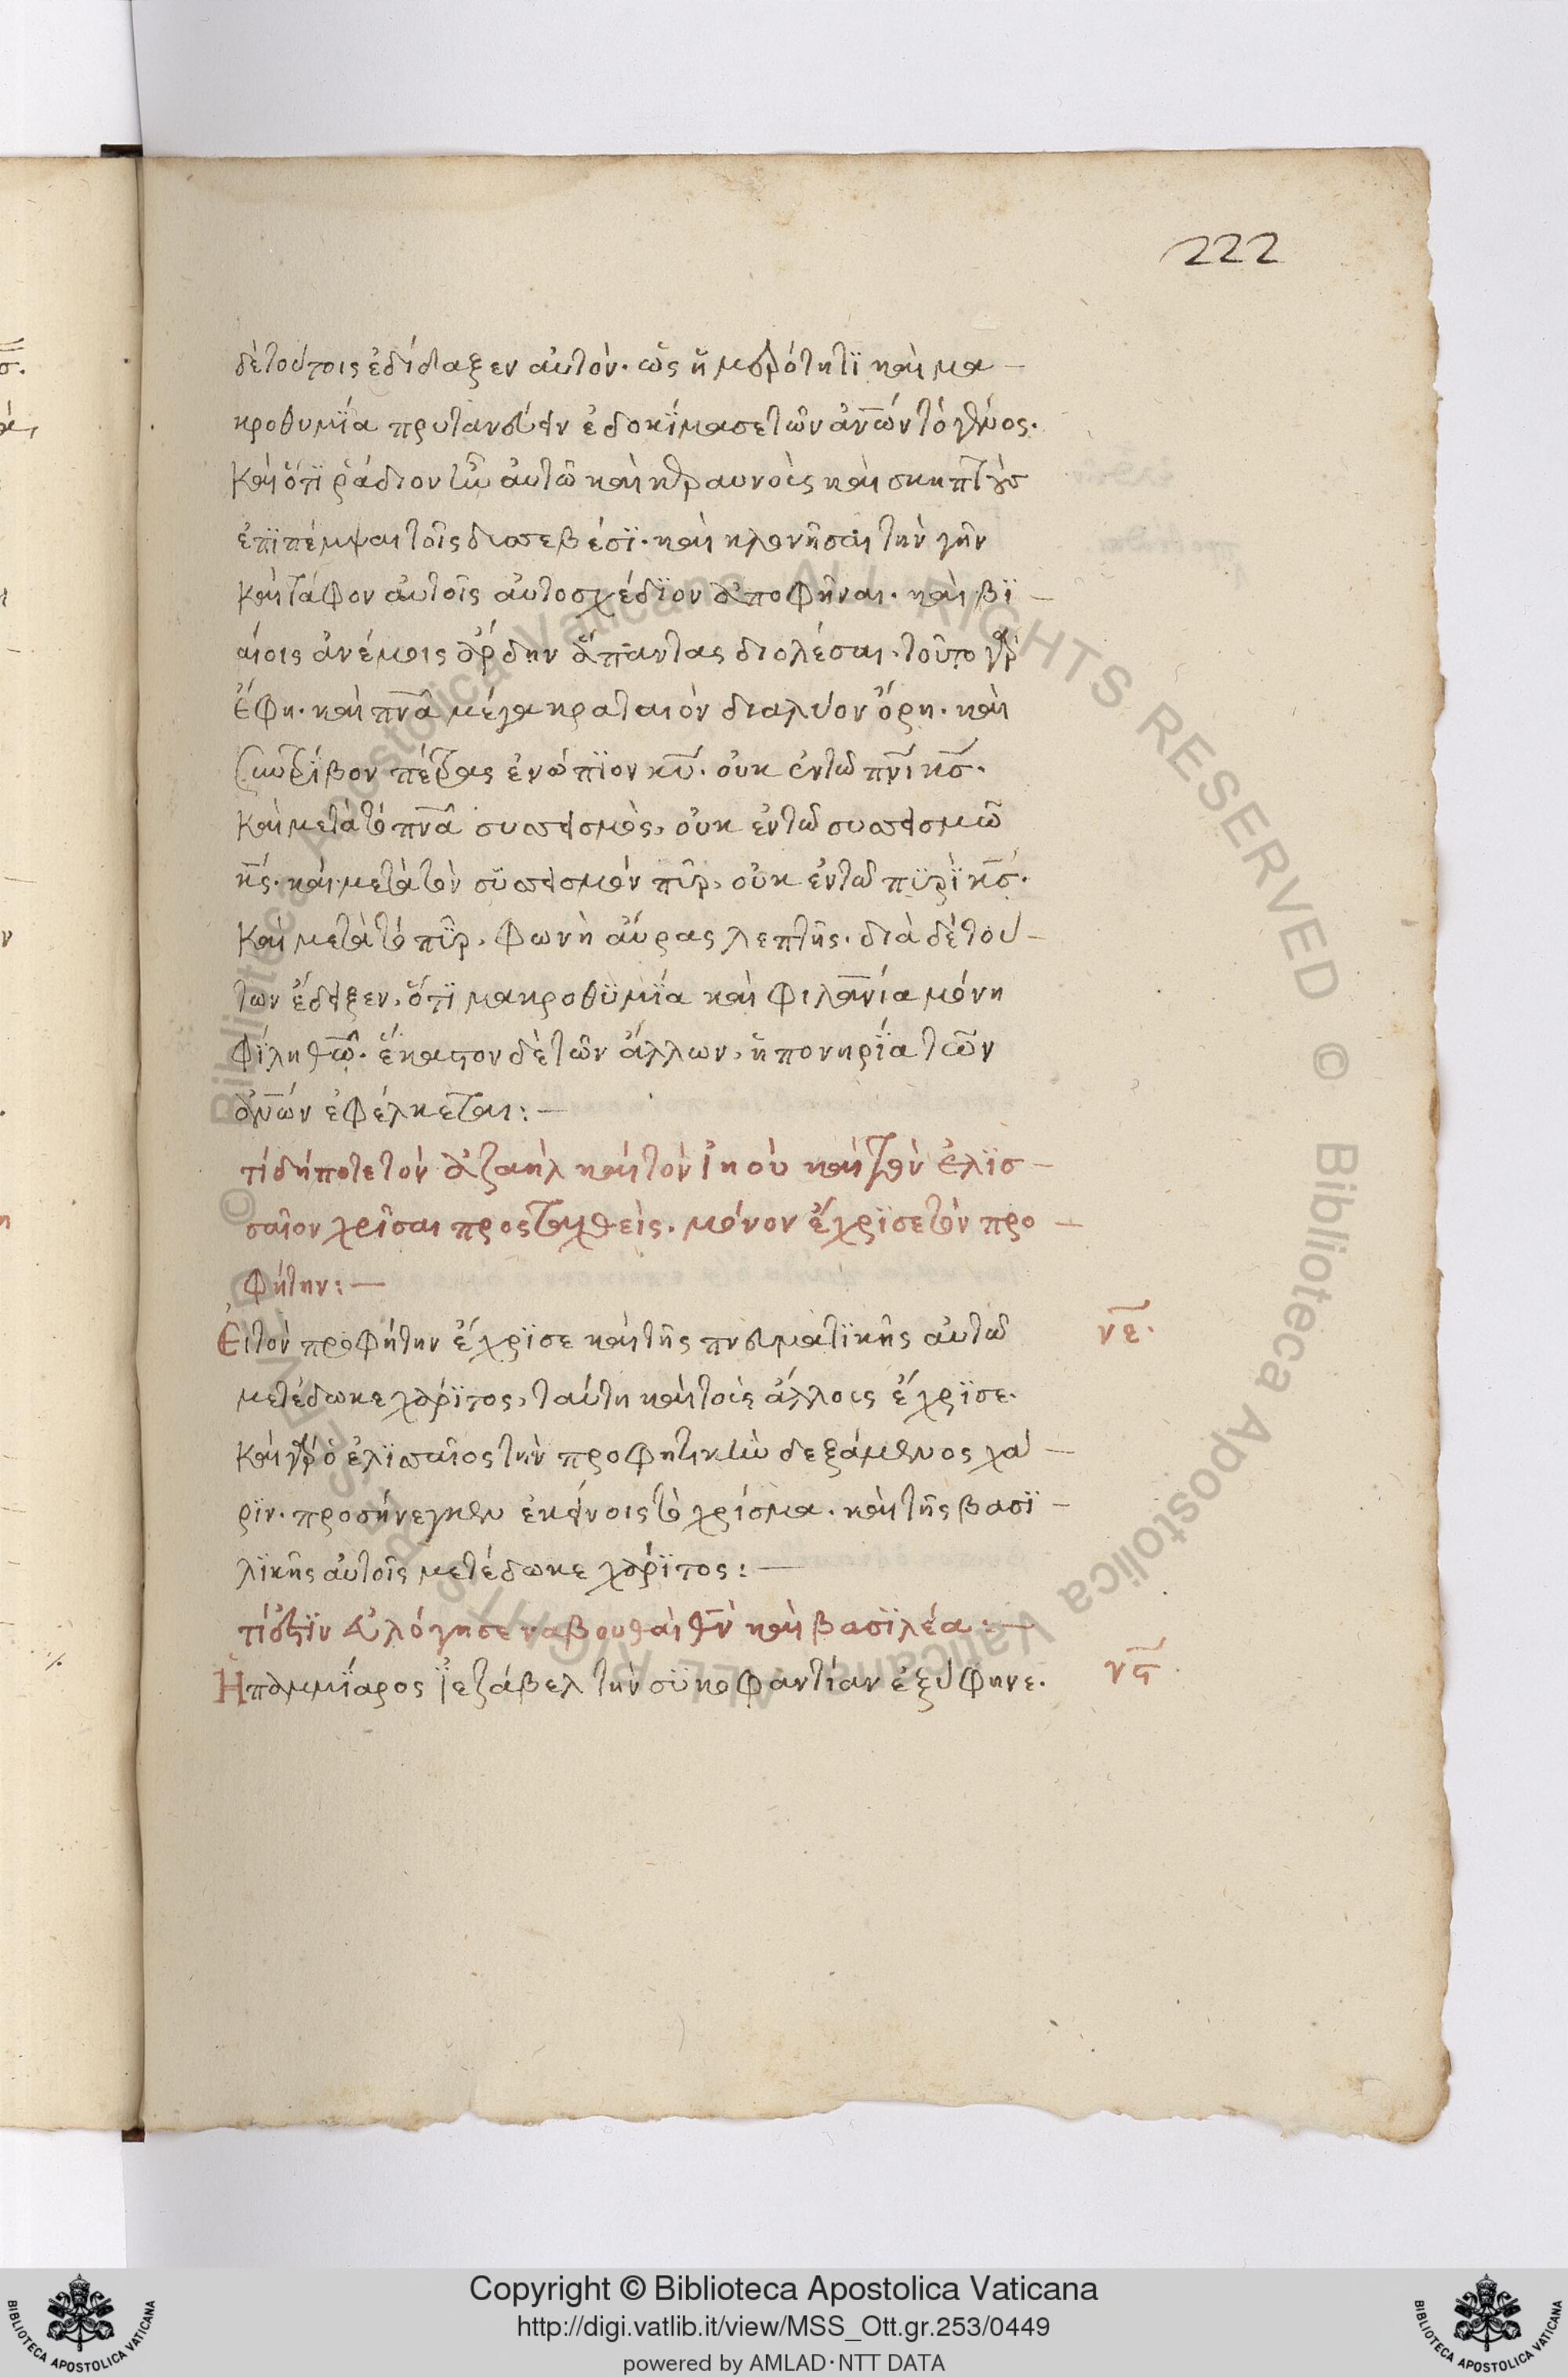 222
δὲ τούτοις ἐδίδαξεν αὐτόν. ὡς ἡμερότητϊ καὶ μα –
κροθυμΐα πρυτανεύειν ἐδοκΐμασε τῶν ἀν̅ων τὸ γένος.
Καὶ ὅτϊ ῥάδιον ἦν αὐτῶ καὶ κεραυνοὺς καὶ σκηπτοὺς
ἐπϊπέμψαι τοῖς δυσσεβέσϊ. καὶ κλονῆσαι τὴν γῆν
Καὶ τάφον αὐτοῖς αὐτοσχέδϊον ἀποφῆναι. καὶ βϊ –
αίοις ἀνέμοις ἄρδην ἅπαντας διολέσαι. τοῦτο γὰρ
Ἔφη. καὶ πν̅α μέγα κραταιὸν διαλύον ὄρη. καὶ
Συντρῖβον πέτρας ἐνώπϊον κ̅υ. οὐκ ἐν τῶ πν̅ι κ̅σ.
Καὶ μετὰ τὸ πν̅α συσσεισμὸς, οὐκ ἐν τῶ συσσεισμῶ
κ̅ς. καὶ μετὰ τὸν συσσεισμὸν πῦρ, οὐκ ἐν τῶ πϋρὶ κ̅σ.
Καὶ μετὰ τὸ πῦρ, φωνὴ αὔρας λεπτῆς. διὰ δὲ τού –
των ἔδειξεν, ὅτϊ μακροθϋμΐα καὶ φιλαν̅ία μόνη
φίλη θ̅ω. ἕκαστον δὲ τῶν ἄλλων, ἡ πονηρΐα τῶν
ἀν̅ων ἐφέλκεται : –
τί δήποτε τὸν ἀζαὴλ καὶ τὸν ἰηοὺ καὶ τὸν ἐλϊσ –
σαῖον χρῖσαι προσταχθεὶς. μόνον ἔχρϊσε τὸν προ –
φήτην : –
Εἰ τὸν προφήτην ἔχρϊσε καὶ τῆς πνευματϊκῆς αὐτῶ
νε.
μετέδωκε χάρϊτος, ταύτη καὶ τοὺς ἄλλους ἔχρϊσε.
Καὶ γὰρ ὁ ἐλϊσσαῖος τὴν προφητικὴν δεξάμενος χά –
ρϊν. προσήνεγκεν ἐκείνοις τὸ χρίσμα. καὶ τῆς βασϊ –
λϊκῆς αὐτοῖς μετέδωκε χάρϊτος : –
τί ἐστϊν εὐλόγησε ναβουθαὶ θ̅ν καὶ βασϊλέα : –
Ἡ παμμΐαρος ϊεζάβελ τὴν σϋκοφαντίαν ἐξύφηνε.
νϛ.
Copyright © Biblioteca Apostolica Vaticana
http://digi.vatlib.it/view/MSS_Ott.gr.253/0449
powered by AMLAD·NTT DATA